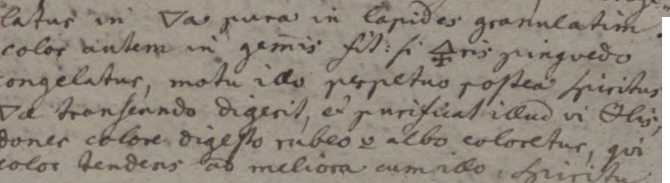 latus in 🜃a pura in lapides granulatim
color autem in gem̄is fit: si 🜍ris pinguedo
congelatur, motu illo perpetuo postea spiritus
🜃æ transeundo digerit, et purificat illud vi Solis,
donec colore digesto rubeo & albo coloretur, qui
color tendens ad meliora cum illo spiritu